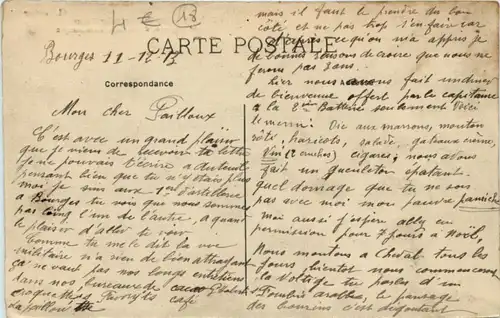 4 € 18
Bourges 11-12-13
CARTE POSTALE
Correspondance
Mon cher Pailloux
C'est avec un grand plaisir
que je viens de recevoir ta lettre
je ne pouvais t'écrire
pensant bien que tu n'étais plus
moi je suis aux 1er d'artillerie
a Bourges tu vois que nous sommes
pas loing l'un de l'autre, a quand
le plaisir d'aller te voir
Comme tu me le dit la vie
militaire n'a rien de bien attrayant
ça ne vaut pas nos longs entretiens
dans nos bureaux de cacao
croquettes favoris café
mais il faut le prendre du bon
coté et ne pas trop s'en faire car
d'après ce qu'on m'a appris je
de bonnes raisons de croire que nous ne
ferons pas 3 ans.
hier nous avons fait un diner
de bienvenue offert par le capitaine
a la 2eme Batterie seulement Voici
le menu: Oie aux marrons, mouton
roti, haricots, salade, gateaux crème,
Vin cigares; nous avons
fait un gueuleton épatant.
quel dommage que tu ne sois
pas avec moi mon pauvre
moi aussi j'espère aller en
permission pour 7 jours a Noël,
Nous montons a cheval tous les
jours bientôt nous commencerons
la Voltige tu parles d'un
arabe, le pansage
des bourins c'est dégoutant